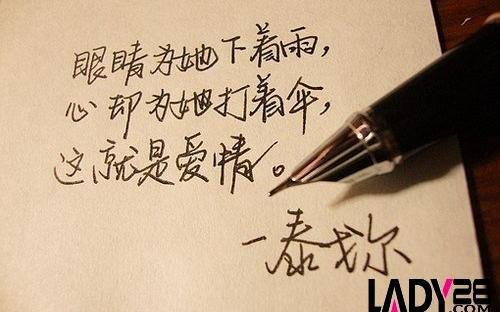 眼睛为她下着雨，
心却为她打着伞，
这就是爱情。
一泰戈尔
LADY28
.COM